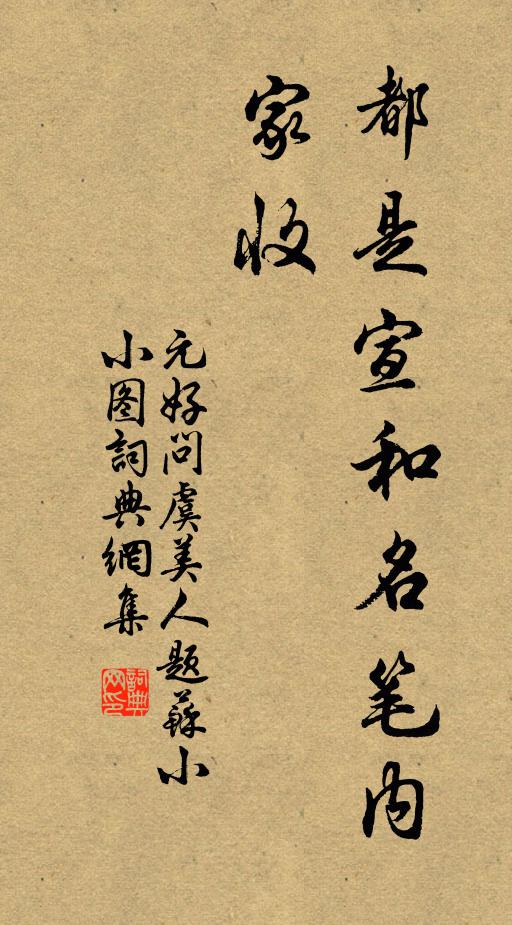 都是宣和名笔内
家收
元好问虞美人题蘇小
小图詞典網集
詞典
网印